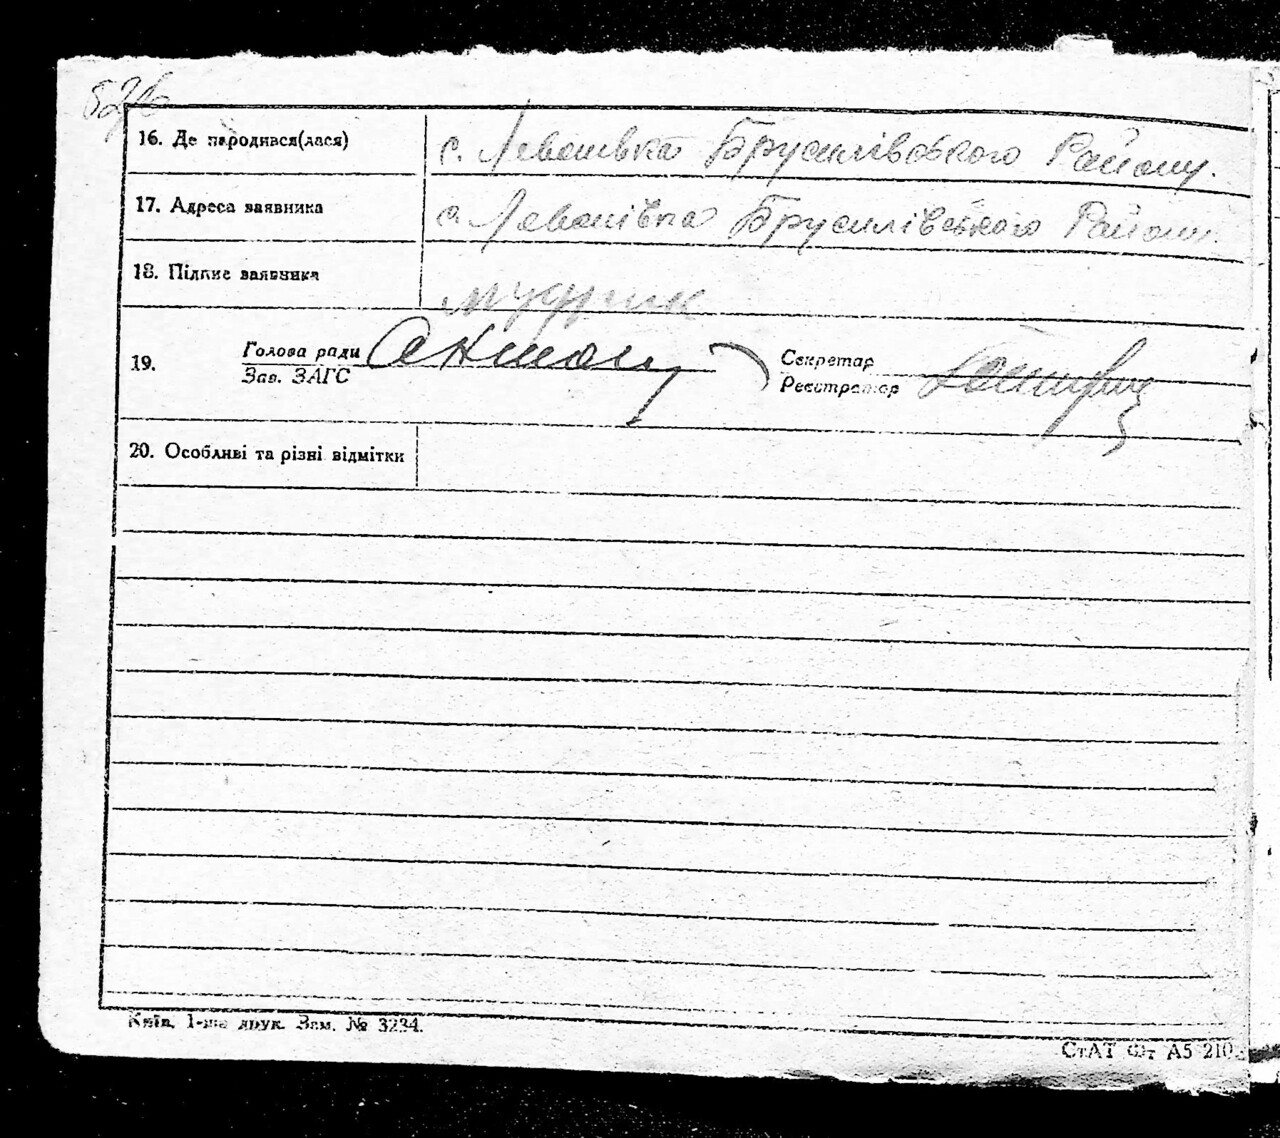 16. Де народився(лася)
с. Левонівка Брусилівського Району.
17. Адреса заявника
с. Левонівка Брусилівського Району.
18. Підпис заявника
Мудрик
19.
Голова ради
Зав. ЗАГС
Секретар
Реєстратор
20. Особливі та різні відмітки
Київ, 1-ша друк. Зам. № 3234.
СтАТ Фт А5 210